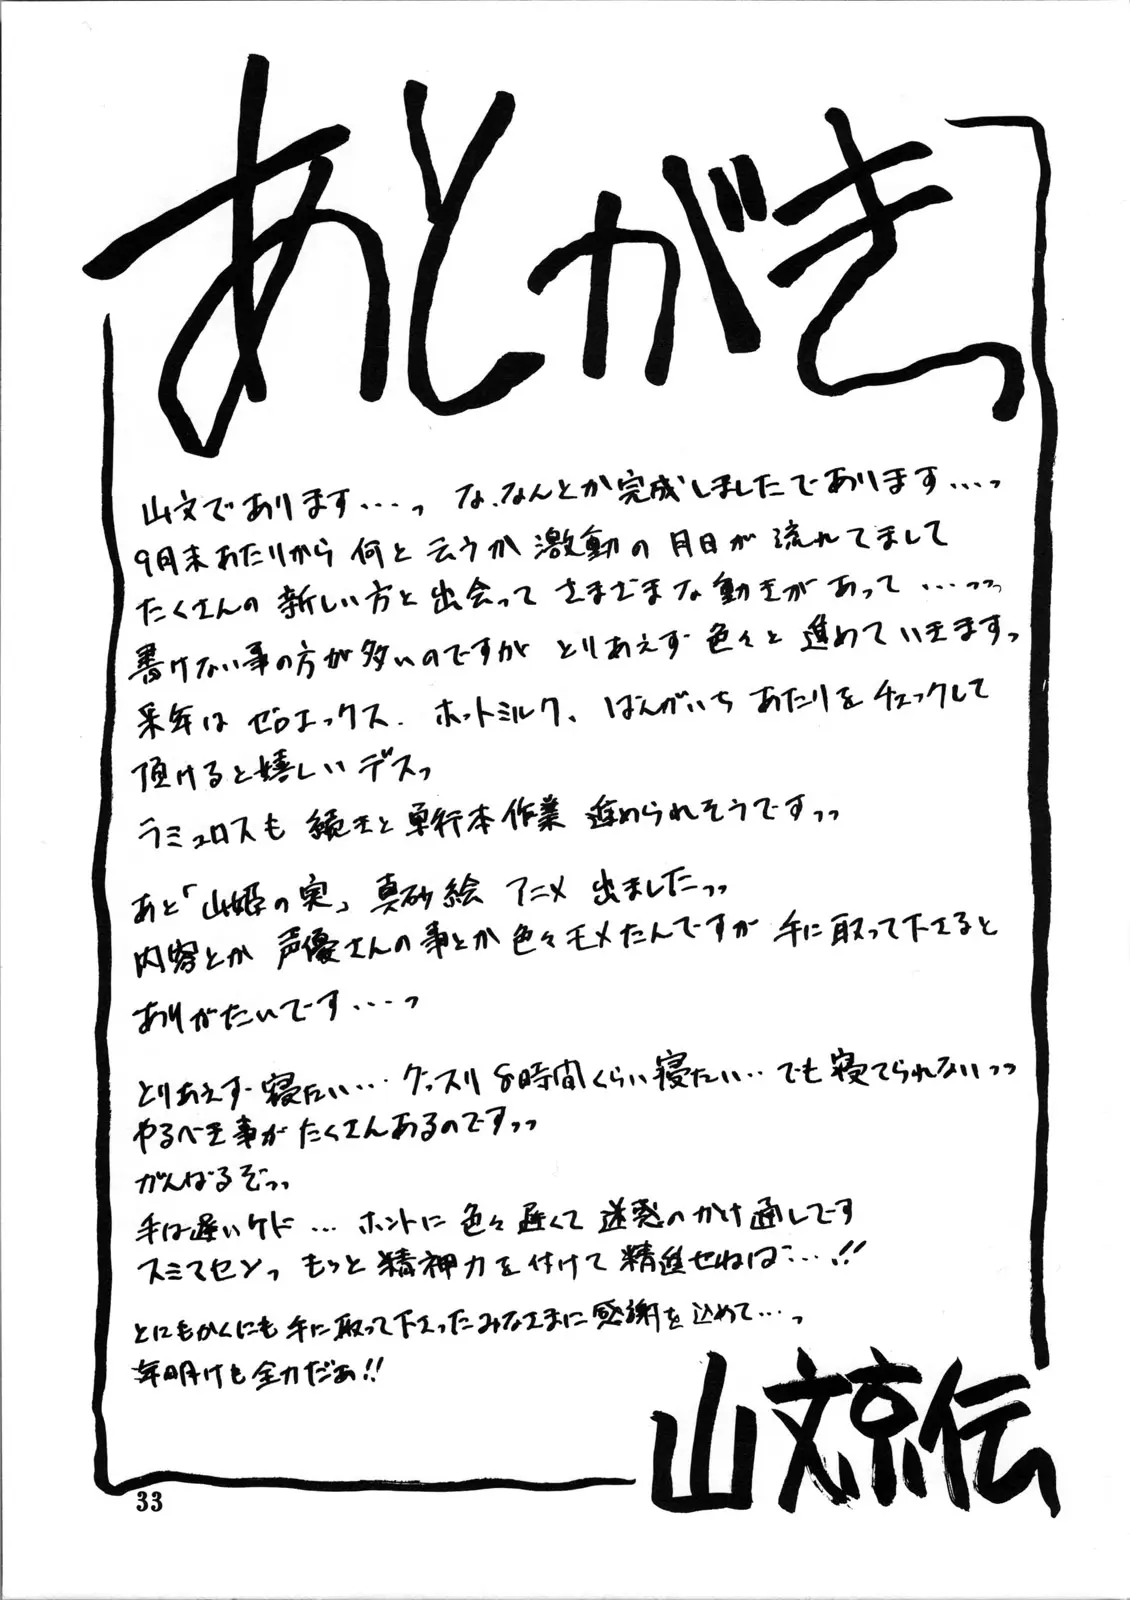 あとがきっ
山文であります・・・・っ な、なんとか完成しましたであります・・・・っ
9月末あたりから 何と云うか 激動の 月日が 流れてまして
たくさんの 新しい方と 出会って さまざまな 動きがあって ・・・っっっ
書けない事の方が多いのですが とりあえず 色々と 進めていきますっ
来年は ゼロエックス、ホットミルク、ばんがいち あたりを チェックして
頂けると嬉しいデスっ
ラミュロスも 続きと 単行本作業 進められそうですっっ
あと「山姫の実」真砂絵 アニメ 出ましたっっ
内容とか 声優さんの事とか 色々モメたんですが 手に取って下さると
ありがたいです・・・・っ
とりあえず 寝たい・・・ グッスリ 8時間くらい 寝たい・・・ でも 寝てられないっっ
やるべき事が たくさんあるのですっっ
がんばるぞっっ
手は遅いケド ・・・ ホントに 色々 遅くて 迷惑のかけ通しです
スミマセンっ もっと 精神力を付けて 精進せねば・・・・!!
とにもかくにも 手に取って下さったみなさまに 感謝を込めて・・・っ
年明けも 全力だぁ!!
山文京伝
33